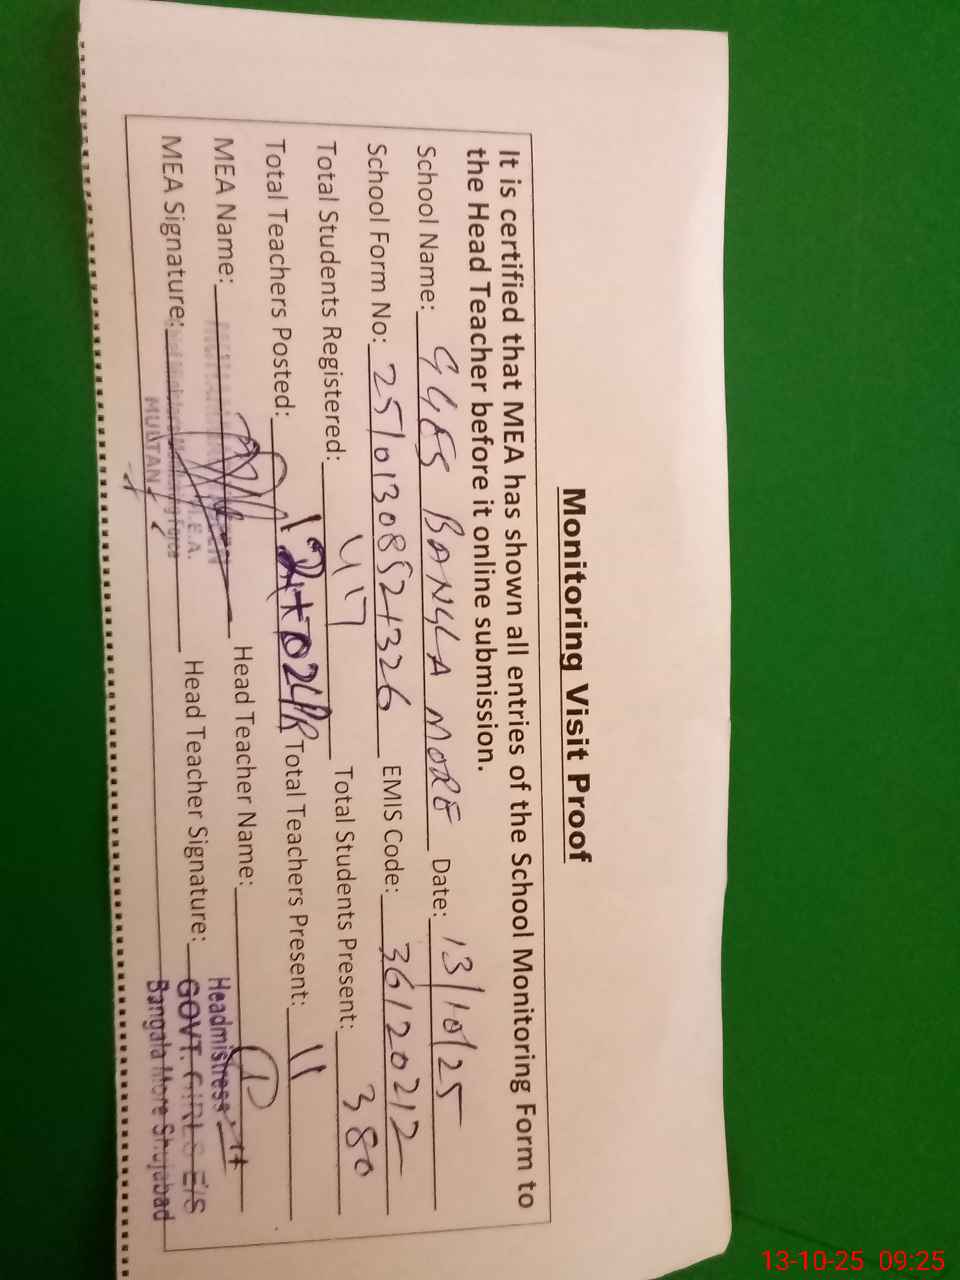 Monitoring Visit Proof
It is certified that MEA has shown all entries of the School Monitoring Form to
the Head Teacher before it online submission.
School Name: GGES BANGLA MORE Date: 13/10/25
School Form No: 25101308521326 EMIS Code: 36120212
Total Students Registered: 417 Total Students Present: 380
Total Teachers Posted: Total Teachers Present: 11
MEA Name: Head Teacher Name:
MEA Signature: Head Teacher Signature:
M.E.A.
MULTAN
Headmistress
GOVT. GIRLS E/S
Bangala More Shujabad
13-10-25 09:25